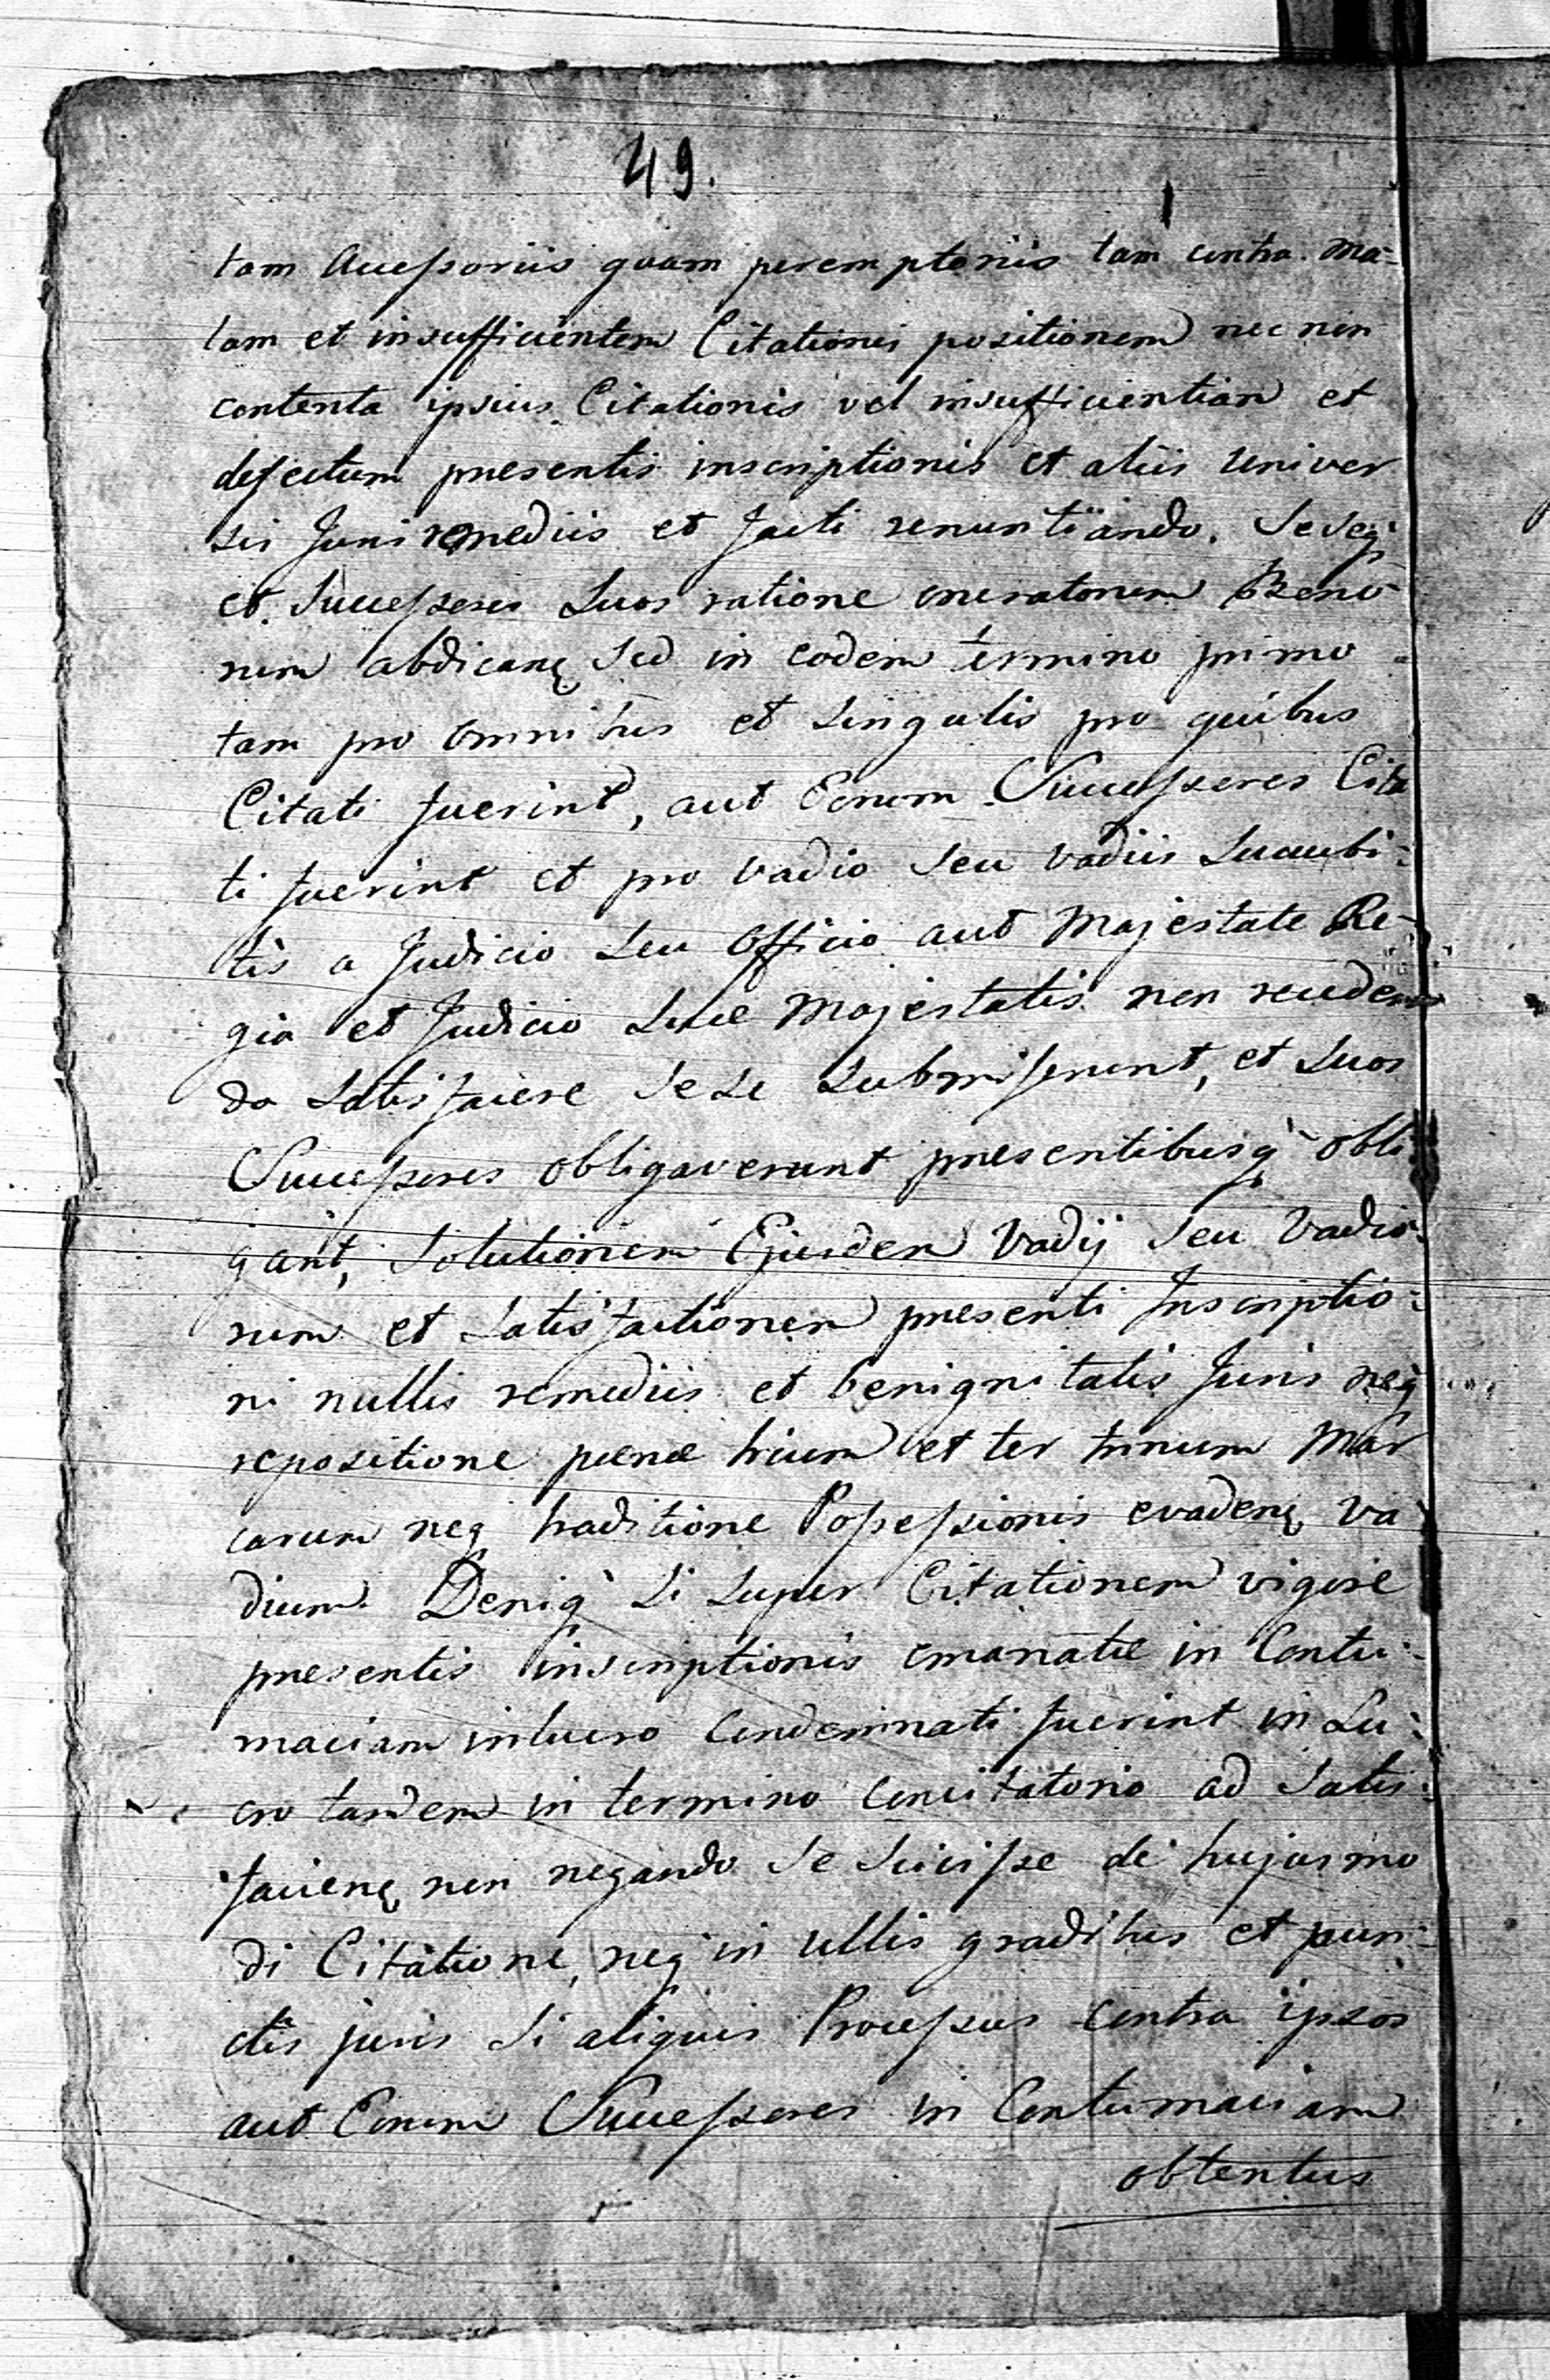 49.
tam accessoriis quam peremptoriis tam contra ma-
lam et insufficientem Citationis positionem nec non
contenta ipsius Citationis vel insufficientiam et
defectum presentis inscriptionis et aliis Univer
sis Juris remediis et facti renuntiando. Se Seq;
et Successores Suos ratione oneratorum Bono-
rum abdicanq Sed in eodem termino primo
tam pro omnibus et singulis pro quibus
Citati fuerint, aut Eorum Successores Cita
ti fuerint et pro vadio Seu vadiis Succubi-
tis a Judicio Seu Officio aut Majestate Re-
gia et Judicio Suae Majestatis non receden
do Satisfacere Sese Submiserunt, et Suos
Successores obligaverunt presentibusq obli
gant, Solutionem Ejusdem Vadij Seu Vadio-
rum et Satisfactionem presenti Inscriptio-
ni nullis remediis et benignitatis Juris neq
repositione poenae trium et ter trium Mar
carum neq traditione Possessionis evadenq va
dium. Deniq Si Super Citationem vigore
presentis inscriptionis emanatae in Contu-
maciam in lucro Condemnati fuerint in Lu-
cro tandem in termino Concitatorio ad Satis-
facienq non negando Se Scivisse de hujusmo
di Citatione, neq in ullis gradibus et pun-
ctis juris Si aliquis Processus contra ipsos
aut Eorum Successores in Contumaciam
obtentus